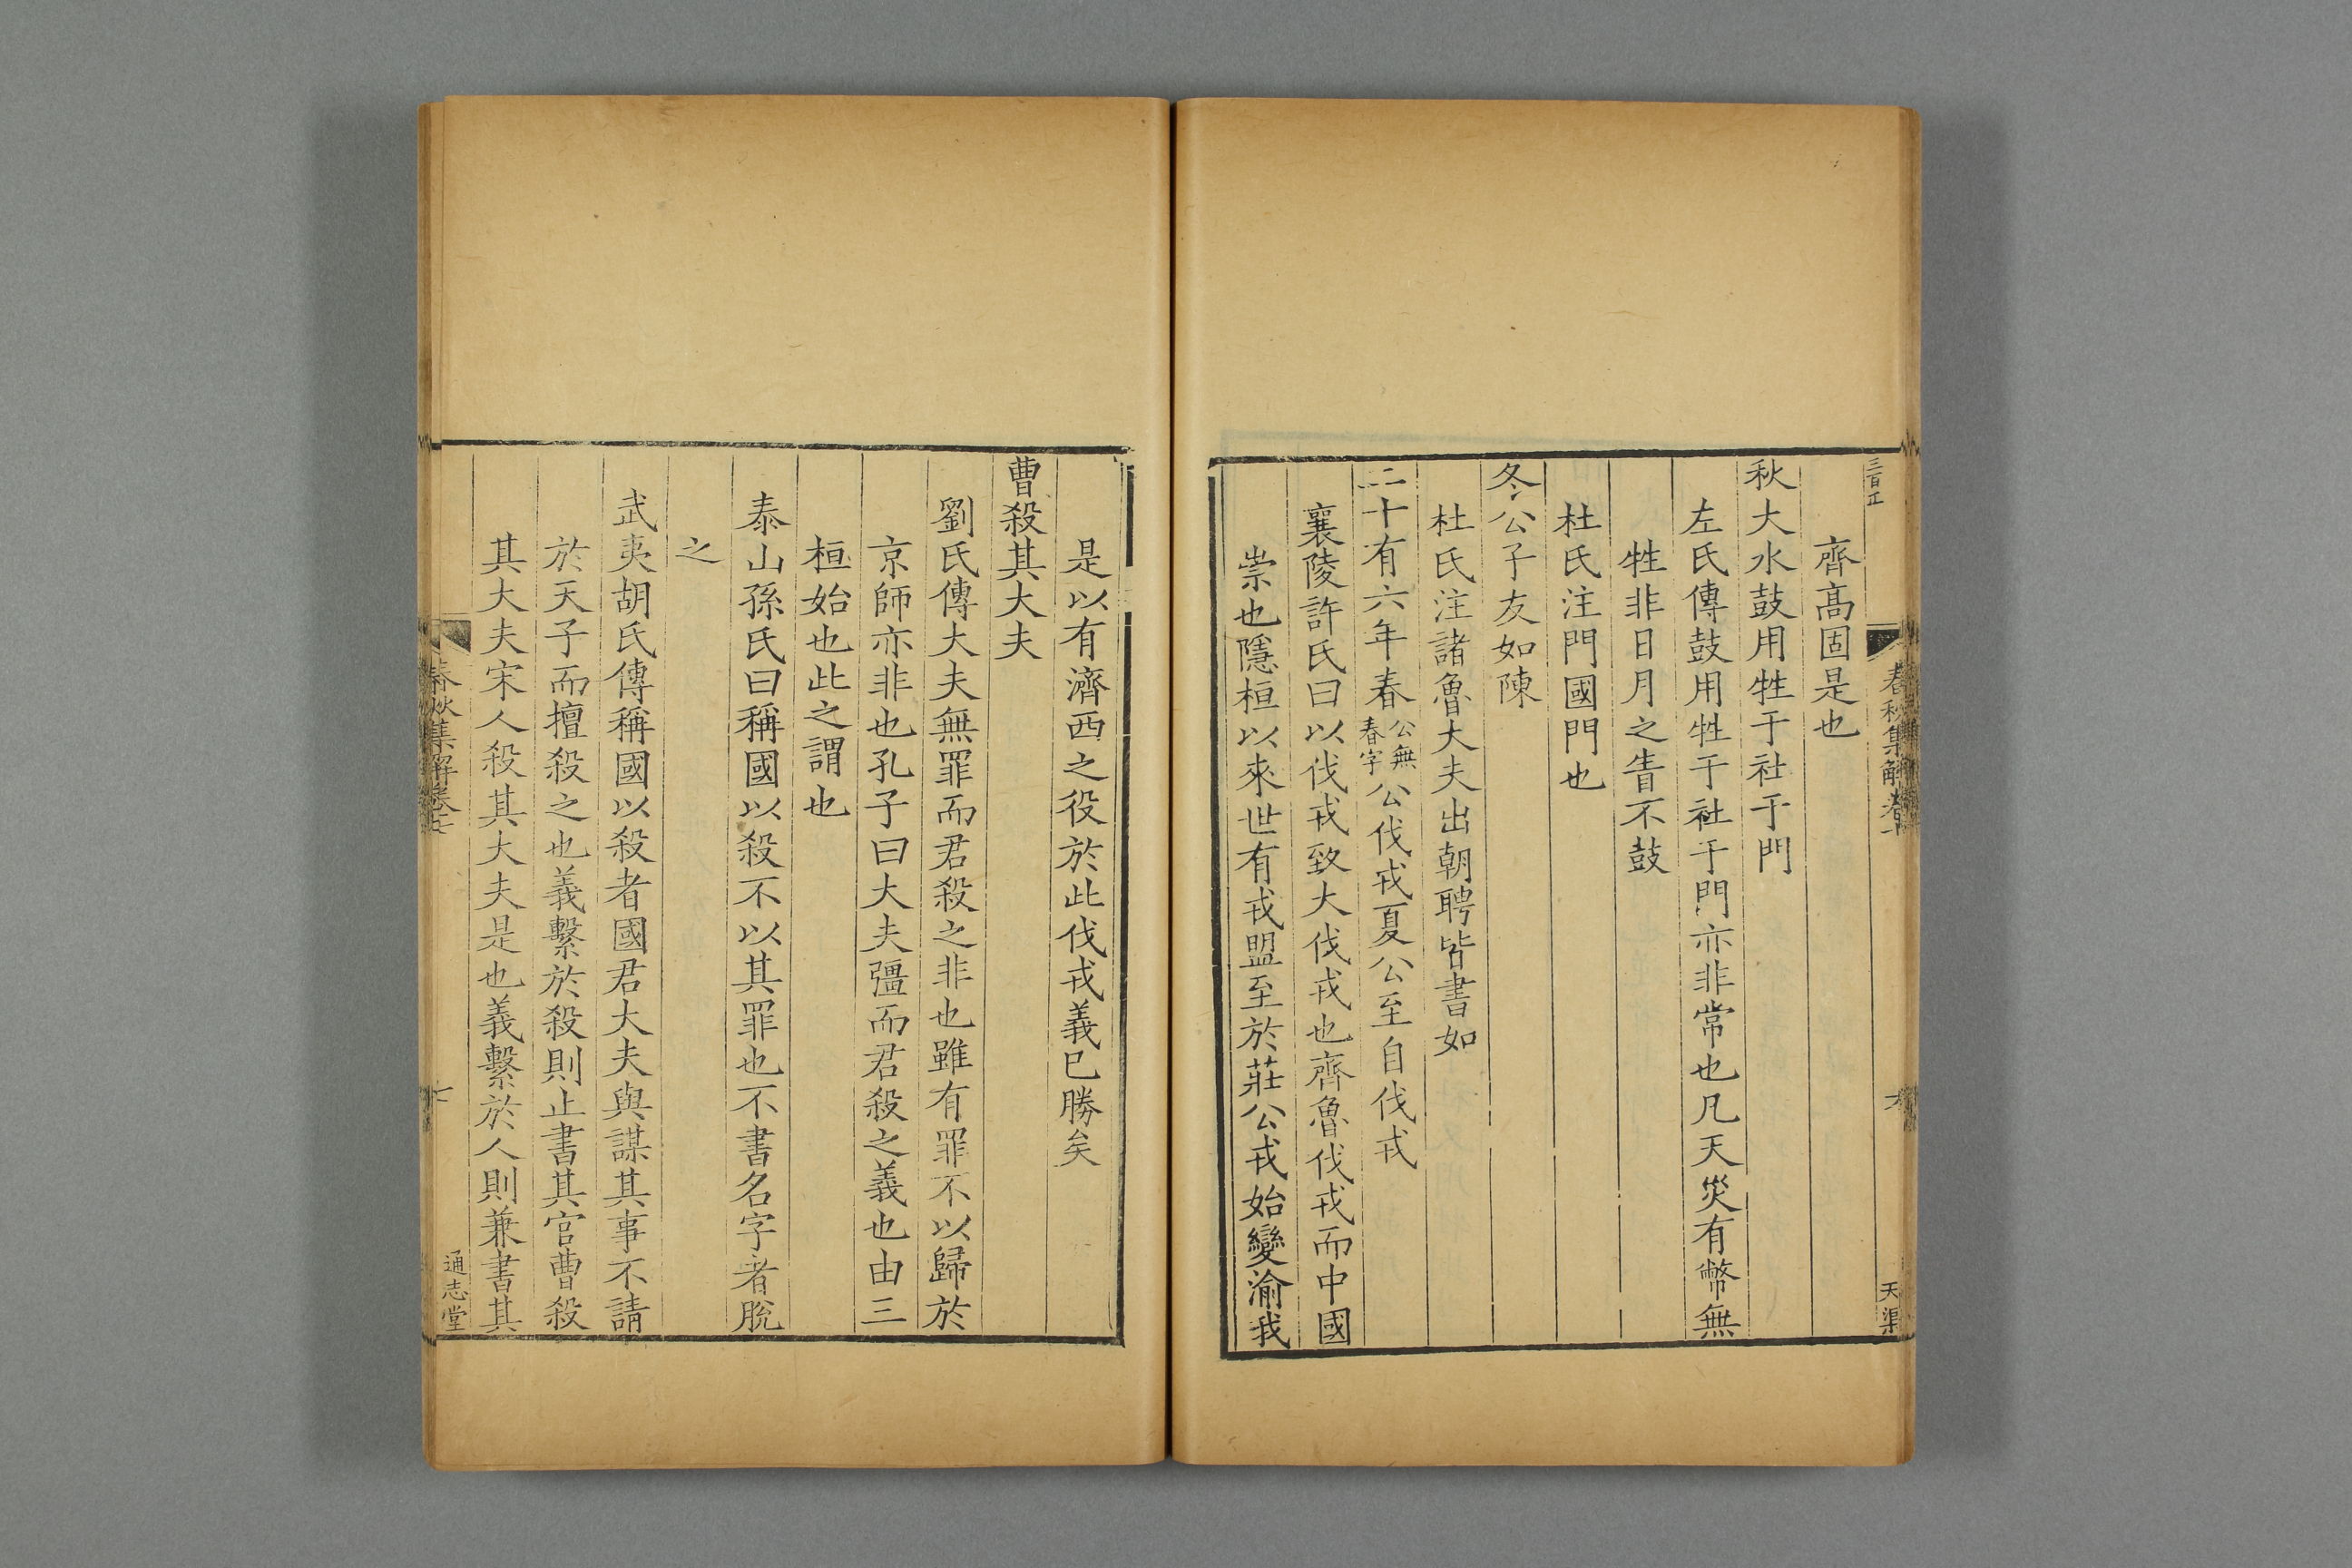 春秋集解卷
天渠
齊髙固是也
秋大水鼓用牲于社于門
左氏傳鼓用牲于社于門亦非常也凡天災有幣無
牲非日月之眚不鼓
杜氏注門國門也
冬公子友如陳
杜氏注諸魯大夫出朝聘皆書如
二十有六年春公無春字公伐戎夏公至自伐戎
襄陵許氏曰以伐戎致大伐戎也齊魯伐戎而中國
崇也隱桓以來世有戎盟至於莊公戎始變渝我
是以有濟西之役於此伐戎義已勝矣
曹殺其大夫
劉氏傳大夫無罪而君殺之非也雖有罪不以歸於
京師亦非也孔子曰大夫彊而君殺之義也由三
桓始也此之謂也
泰山孫氏曰稱國以殺不以其罪也不書名字者脫
之
武夷胡氏傳稱國以殺者國君大夫與謀其事不請
於天子而擅殺之也義繫於殺則止書其官曹殺
其大夫宋人殺其大夫是也義繫於人則兼書其
春秋集解卷七
通志堂